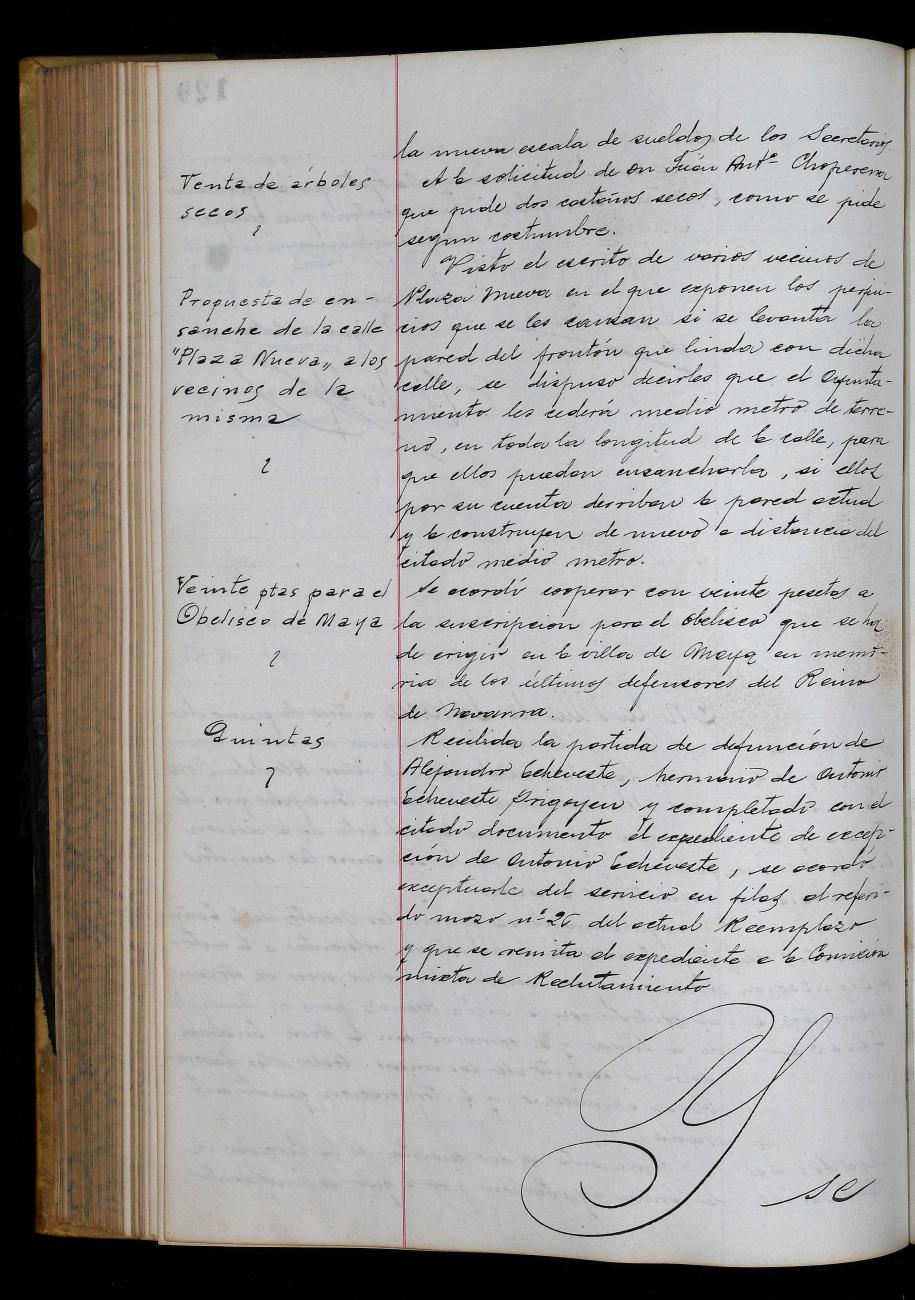 la nueva escala de sueldos de los Secretarios.
Venta de árboles
secos
A la solicitud de Dn Juán Antº Choperena
que pide dos castaños secos, como se pide
segun costumbre.
Propuesta de en-
sanche de la calle
"Plaza Nueva„ a los
vecinos de la
misma
Visto el escrito de varios vecinos de
Plaza Nueva en el que exponen los perjui-
cios que se les causan si se levanta la
pared del frontón que linda con dicha
calle, se dispuso decirles que el Ayunta-
miento les cederá medio metro de terre-
no, en toda la longitud de la calle, para
que ellos puedan ensancharla, si ellos
por su cuenta derriban la pared actual
y la construyen de nuevo a distancia del
citado medio metro.
Veinte ptas para el
Obelisco de Maya
Se acordó cooperar con veinte pesetas a
la suscripcion para el obelisco que se ha
de erigir en la villa de Maya en memo-
ria de los últimos defensores del Reino
de Navarra.
Quintas
Recibida la partida de defunción de
Alejandro Echeveste, hermano de Antonio
Echeveste Yrigoyen y completado con el
citado documento el expediente de excep-
ción de Antonio Echeveste, se acordó
exceptuarle del servicio en filas al referi-
do mozo nº 26 del actual Reemplazo
y que se remita el expediente a la Comision
mixta de Reclutamiento
Y
se